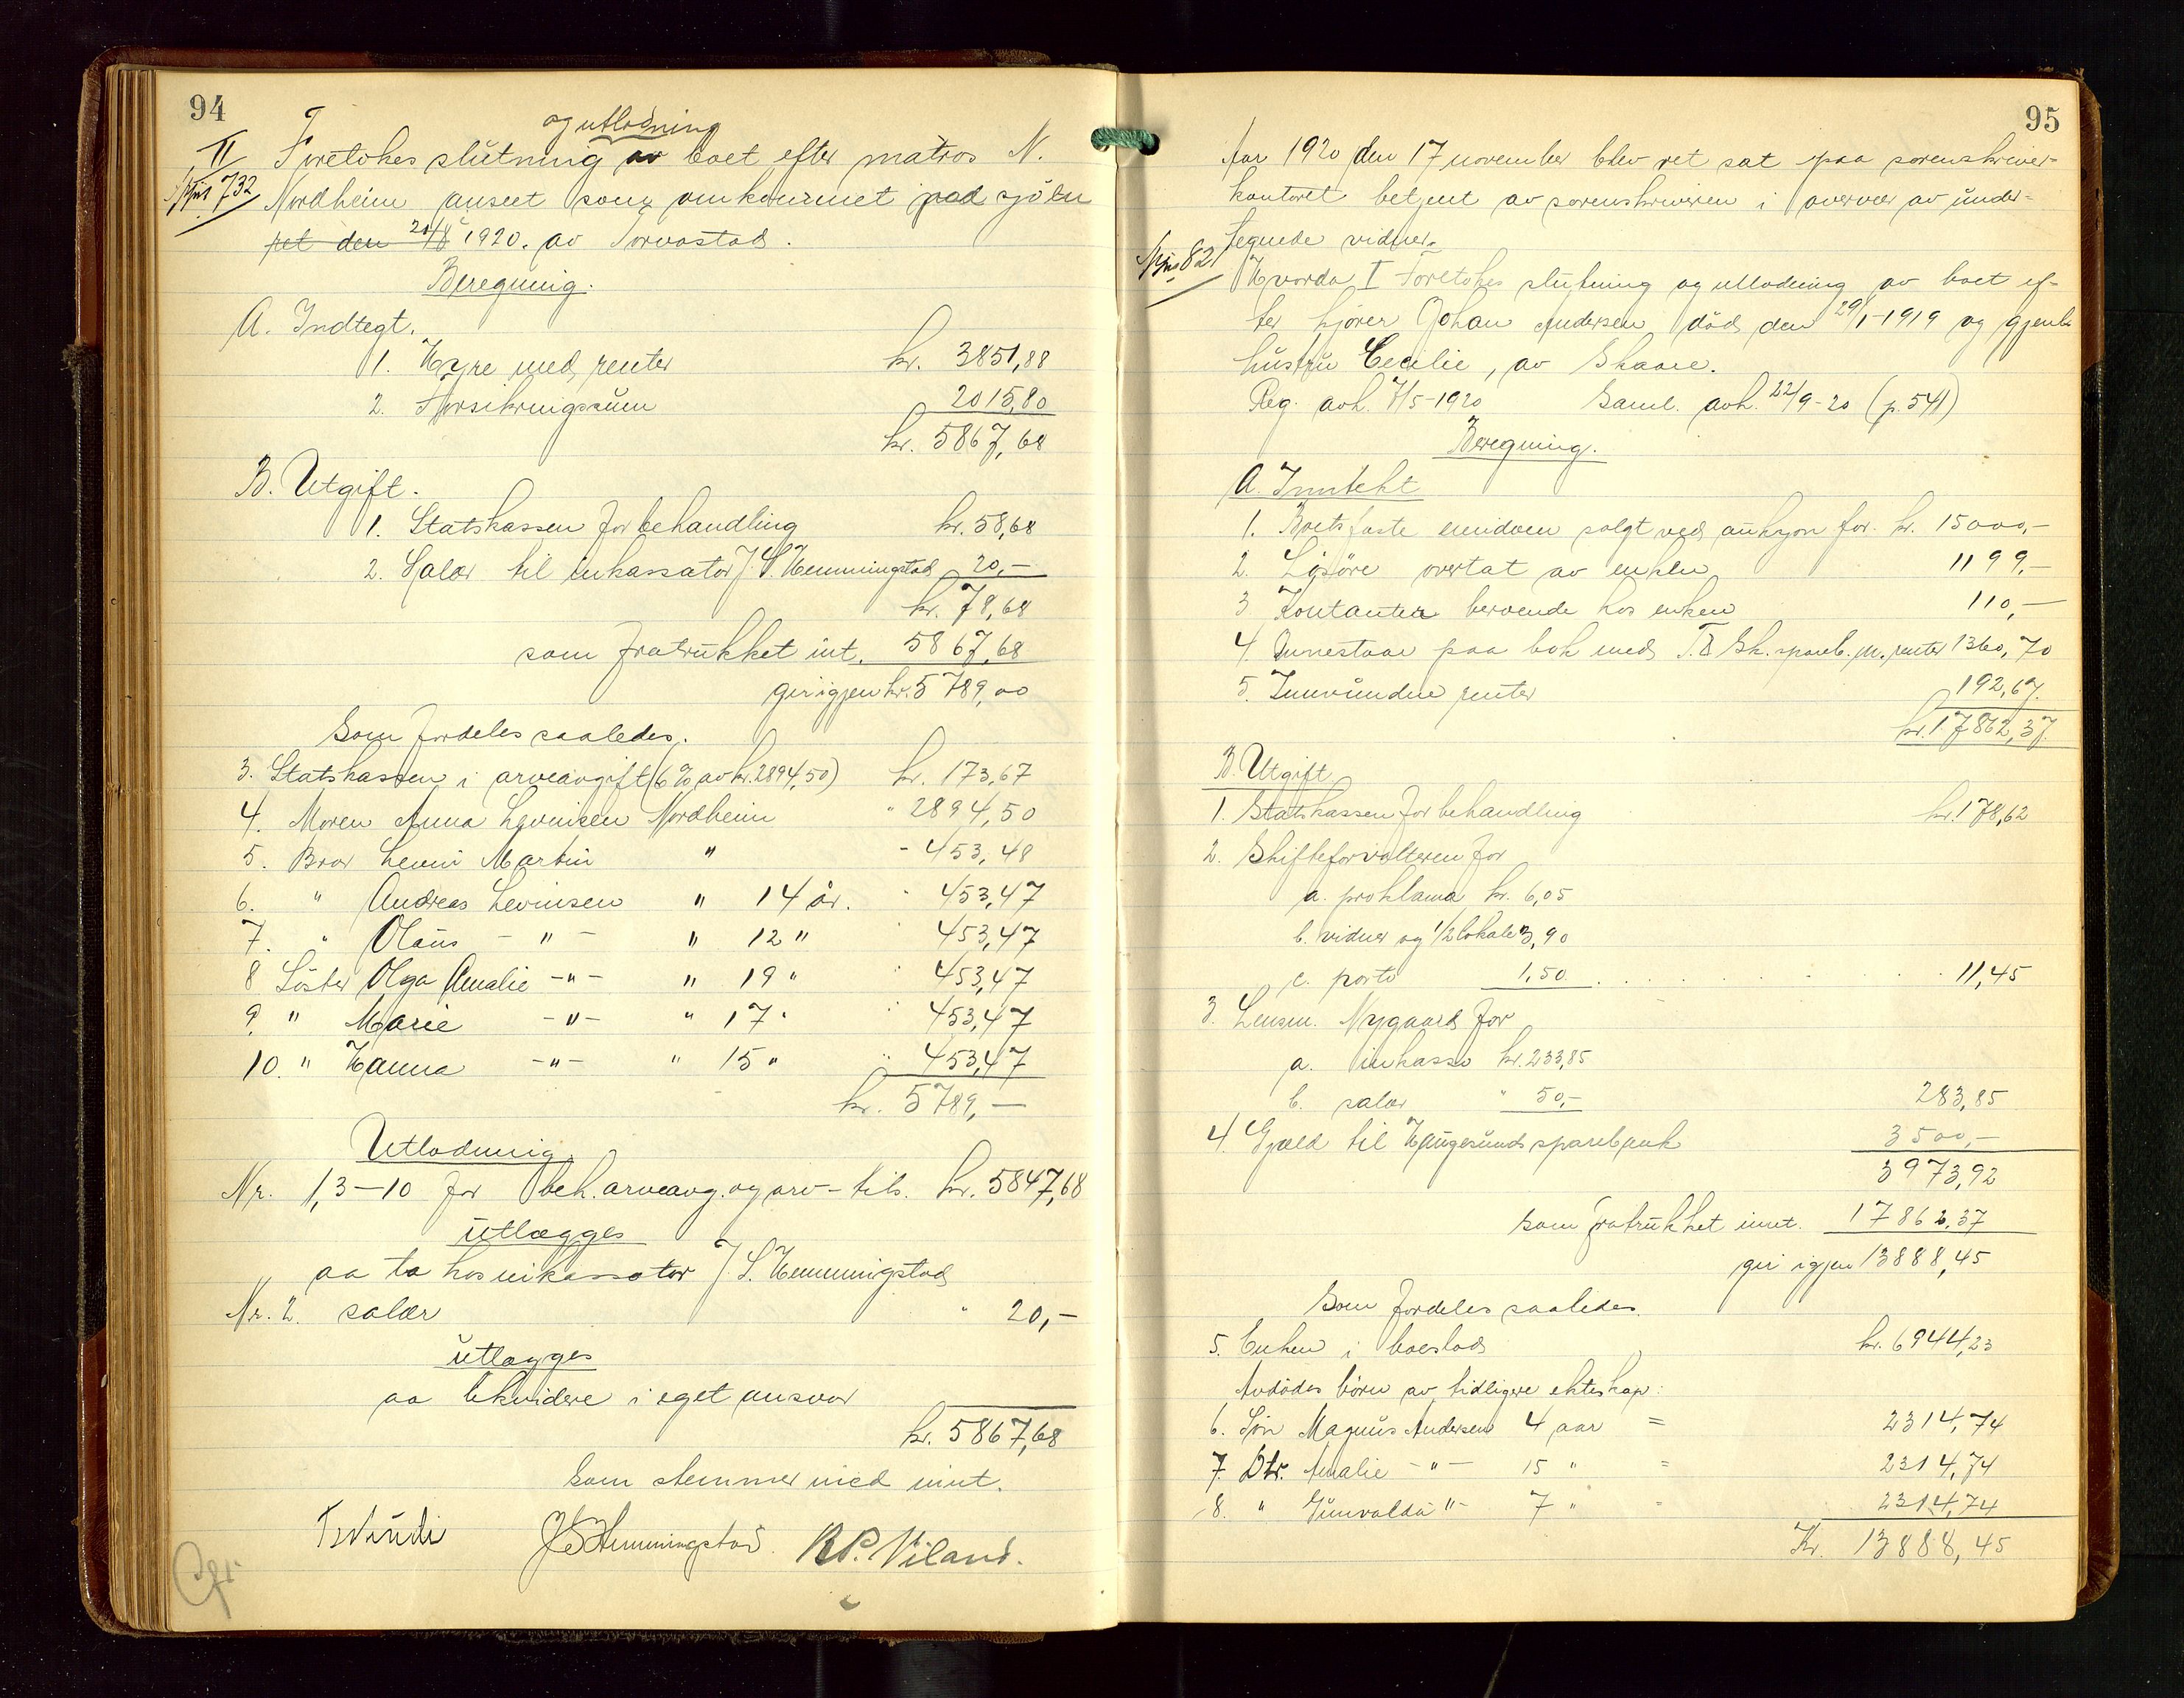 94
og utlodning
II Foretokes slutning av boet efter matros N.
732 Nordheim anseet som omkommet paa sjöen
den 20/8 1920. av Torvastad.
Beregning.
A. Indtegt.
1. Hyre med renter kr. 3851,88
2. Forsikringssum 2015,80
kr. 5867,68
B. Utgift.
1. Statskassen for behandling kr. 58,68
2. Salær til inkassator J. S. Hemmingstad 20,—
kr. 78,68
som fratrukket int. 5867,68
gir igjen kr. 5789,00
Som fordeles saaledes.
3. Statskassen i arveavgift (6 % av kr. 2894,50) kr. 173,67
4. Moren Anna Levinsen Nordheim " 2894,50
5. Bror Levin Martin " - 453,48
6. " Andreas Levinsen " 14 år. " 453,47
7. " Olaus - " - " 12 " 453,47
8 Söster Olga Amalie - " - " 19 " 453,47
9. " Marie - " - " 17 " 453,47
10. " Hanna - " - " 15 " 453,47
kr. 5789,—
Utlodning
Nr. 1, 3—10 for beh. arveavg. og arv - tils. kr. 5847,68
utlægges
aa ta hos inkassator J. S. Hemmingstad
Nr. 2. salær " 20,—
utlægges
aa likvidere i eget ansvar
kr. 5867,68
Som stemmer med innt.
J S Hemmingstad. R P. Viland.
95
Aar 1920 den 17 november blev ret sat paa sorenskriver-
kontoret betjent av sorenskriveren i overvær av under-
tegnede vidner.
821 Hvorda I Foretokes slutning og utlodning av boet ef-
ter kjører Johan Andersen död den 29/1-1919 og gjenl.
hustru Cecilie, av Skaare.
Reg. avh. 7/5-1920 Saml. avh. 22/9-20 (p. 541)
Beregning.
A. Inntekt
1. Boets faste eiendom solgt ved auksjon for kr. 15000,—
2. Lösöre overtat av enken 1199,—
3 Kontanter beroende hos enken 110,—
4. Innestaar paa bok med T. & Sk. spareb. m. renter 1360,70
5. Innvundne renter 192,67.
kr. 17862,37.
B. Utgift
1. Statskassen for behandling kr. 178,62
2. Skifteforvalteren for
a. proklama kr. 6,05
b. vidner og 1/2 lokale 3,90
c. porto 1,50 . . . . . . . 11,45
3. Lensm. Nygaard for
a. inkasso kr. 233,85
b. salær " 50,— 283,85
4. Gjæld til Haugesunds sparebank 3500,—
3973,92
som fratrukket innt. 17862,37
gir igjen 13888,45
Som fordeles saaledes.
5. Enken i boeslod kr. 6944,23
Avdödes börn av tidligere ekteskap:
6. Sön Magnus Andersen 4 aar = 2314,74
7. Dtr. Amalie - " - 15 " = 2314,74
8. " Gunvalda " - 7 " = 2314,74
Kr. 13888,45